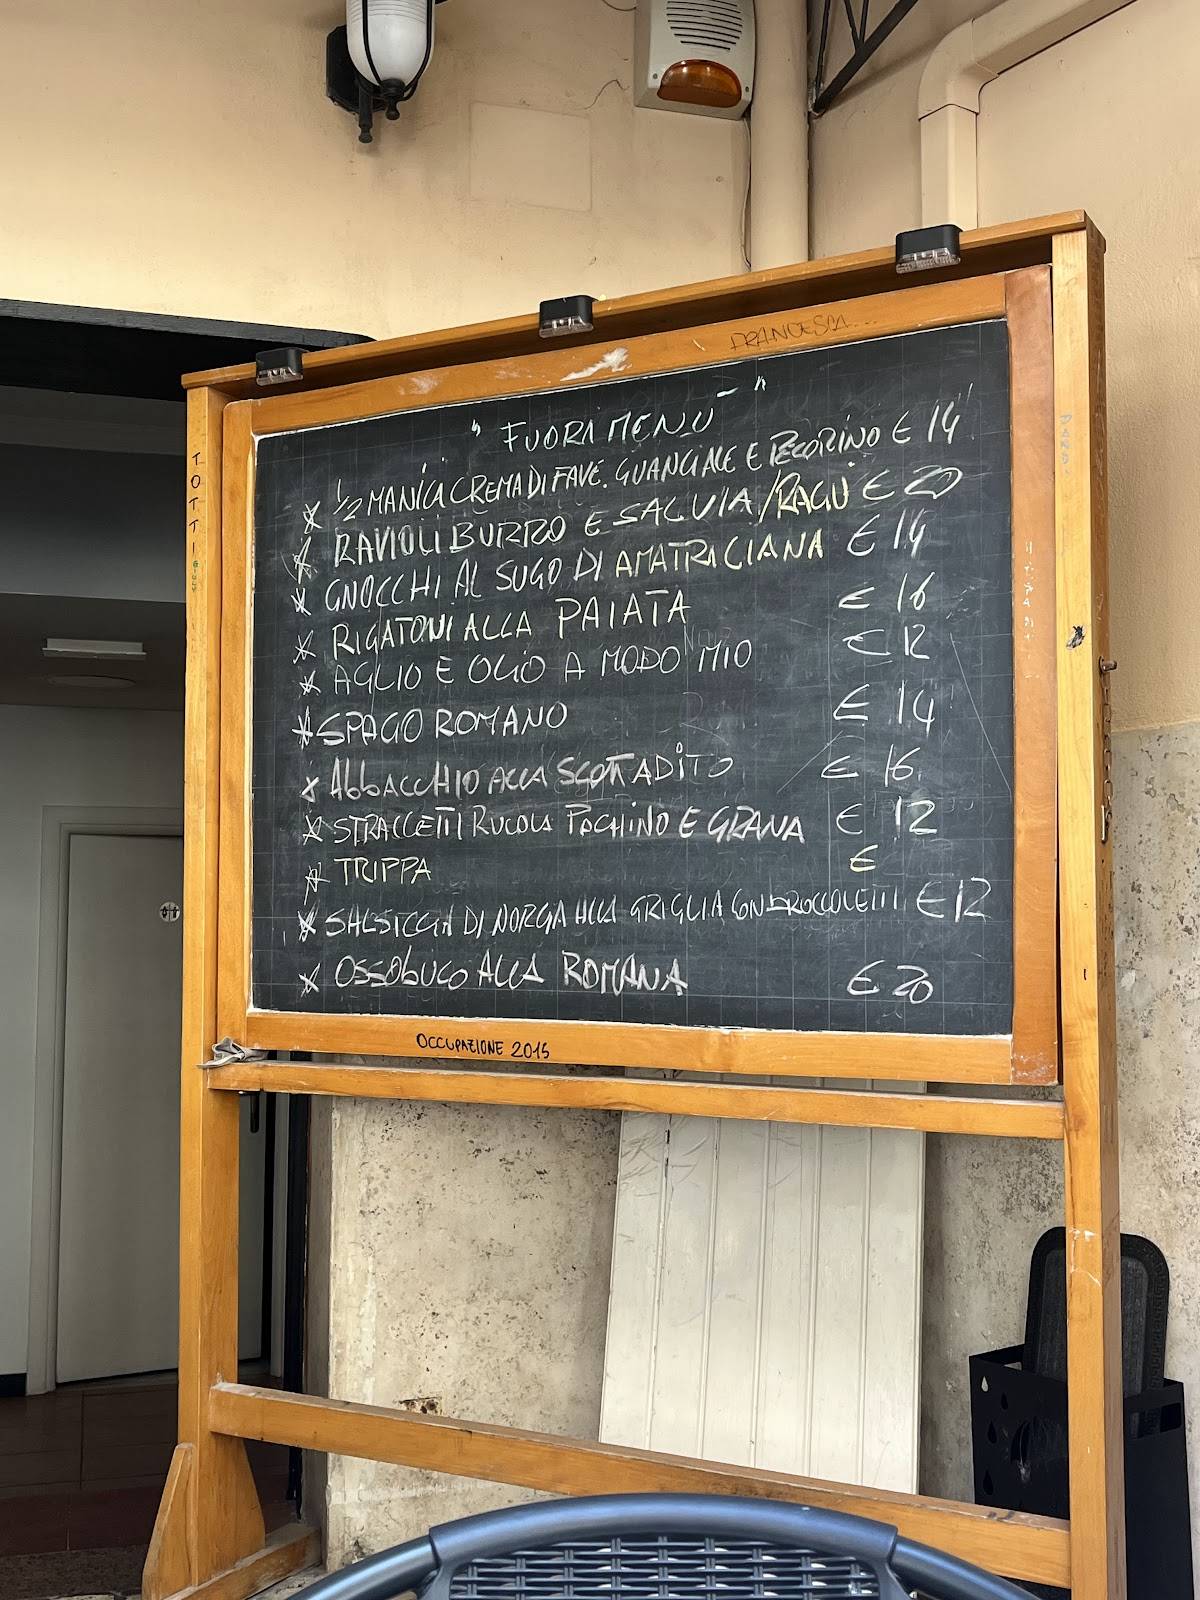 FRANCESCA...
TOTTI
" FUORI MENÙ "
½ MANICI CREMA DI FAVE. GUANCIALE E PECORINO € 14
RAVIOLI BURRO E SALVIA/RAGÙ € 20
GNOCCHI AL SUGO DI AMATRICIANA € 14
RIGATONI ALLA PAIATA € 16
AGLIO E OLIO A MODO MIO € 12
SPAGO ROMANO € 14
ABBACCHIO ALLA SCOTTADITO € 16
STRACCETTI RUCOLA PACHINO E GRANA € 12
TRIPPA €
SALSICCIA DI NORCIA ALLA GRIGLIA CON BROCCOLETTI € 12
OSSOBUCO ALLA ROMANA € 20
OCCUPAZIONE 2015